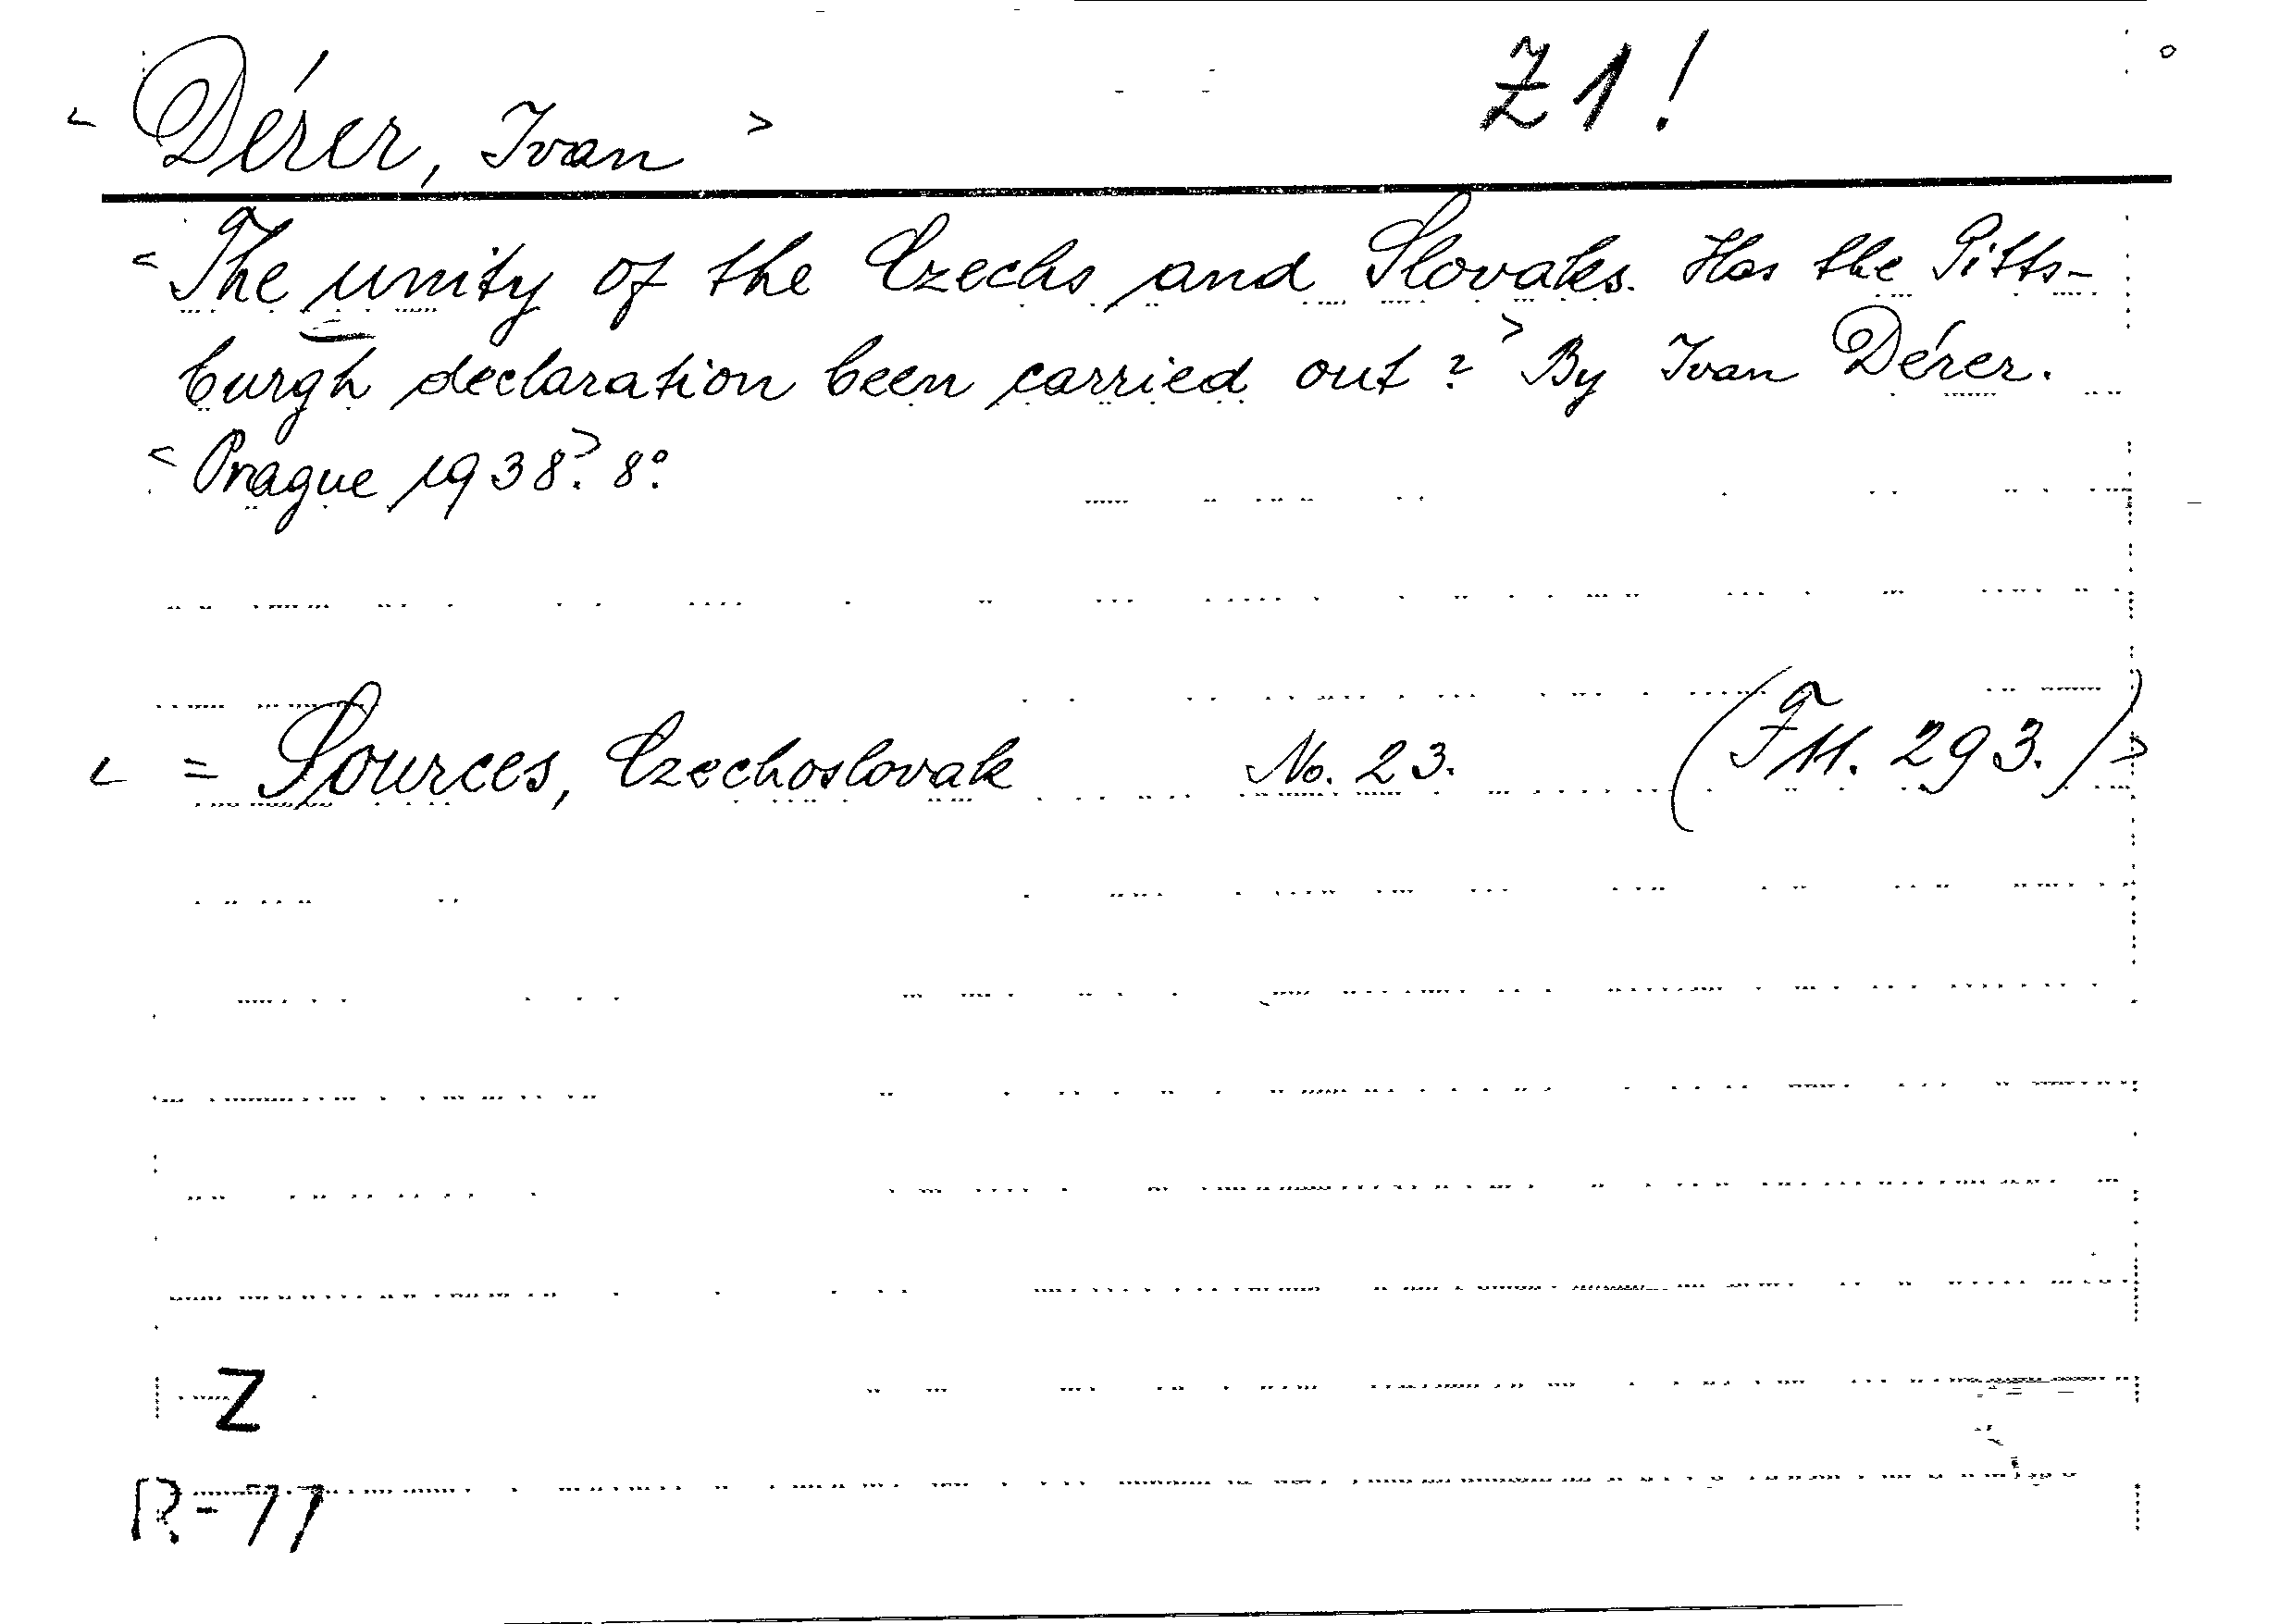 < Dérer, Ivan > Z1!
< The unity of the Czechs and Slovaks. Has the Pitts-
burgh declaration been carried out? > By Ivan Dérer.
< Prague 1938 >. 8°.
< = Sources, Czechoslovak No. 23. (F11. 293.) >
Z
R-77